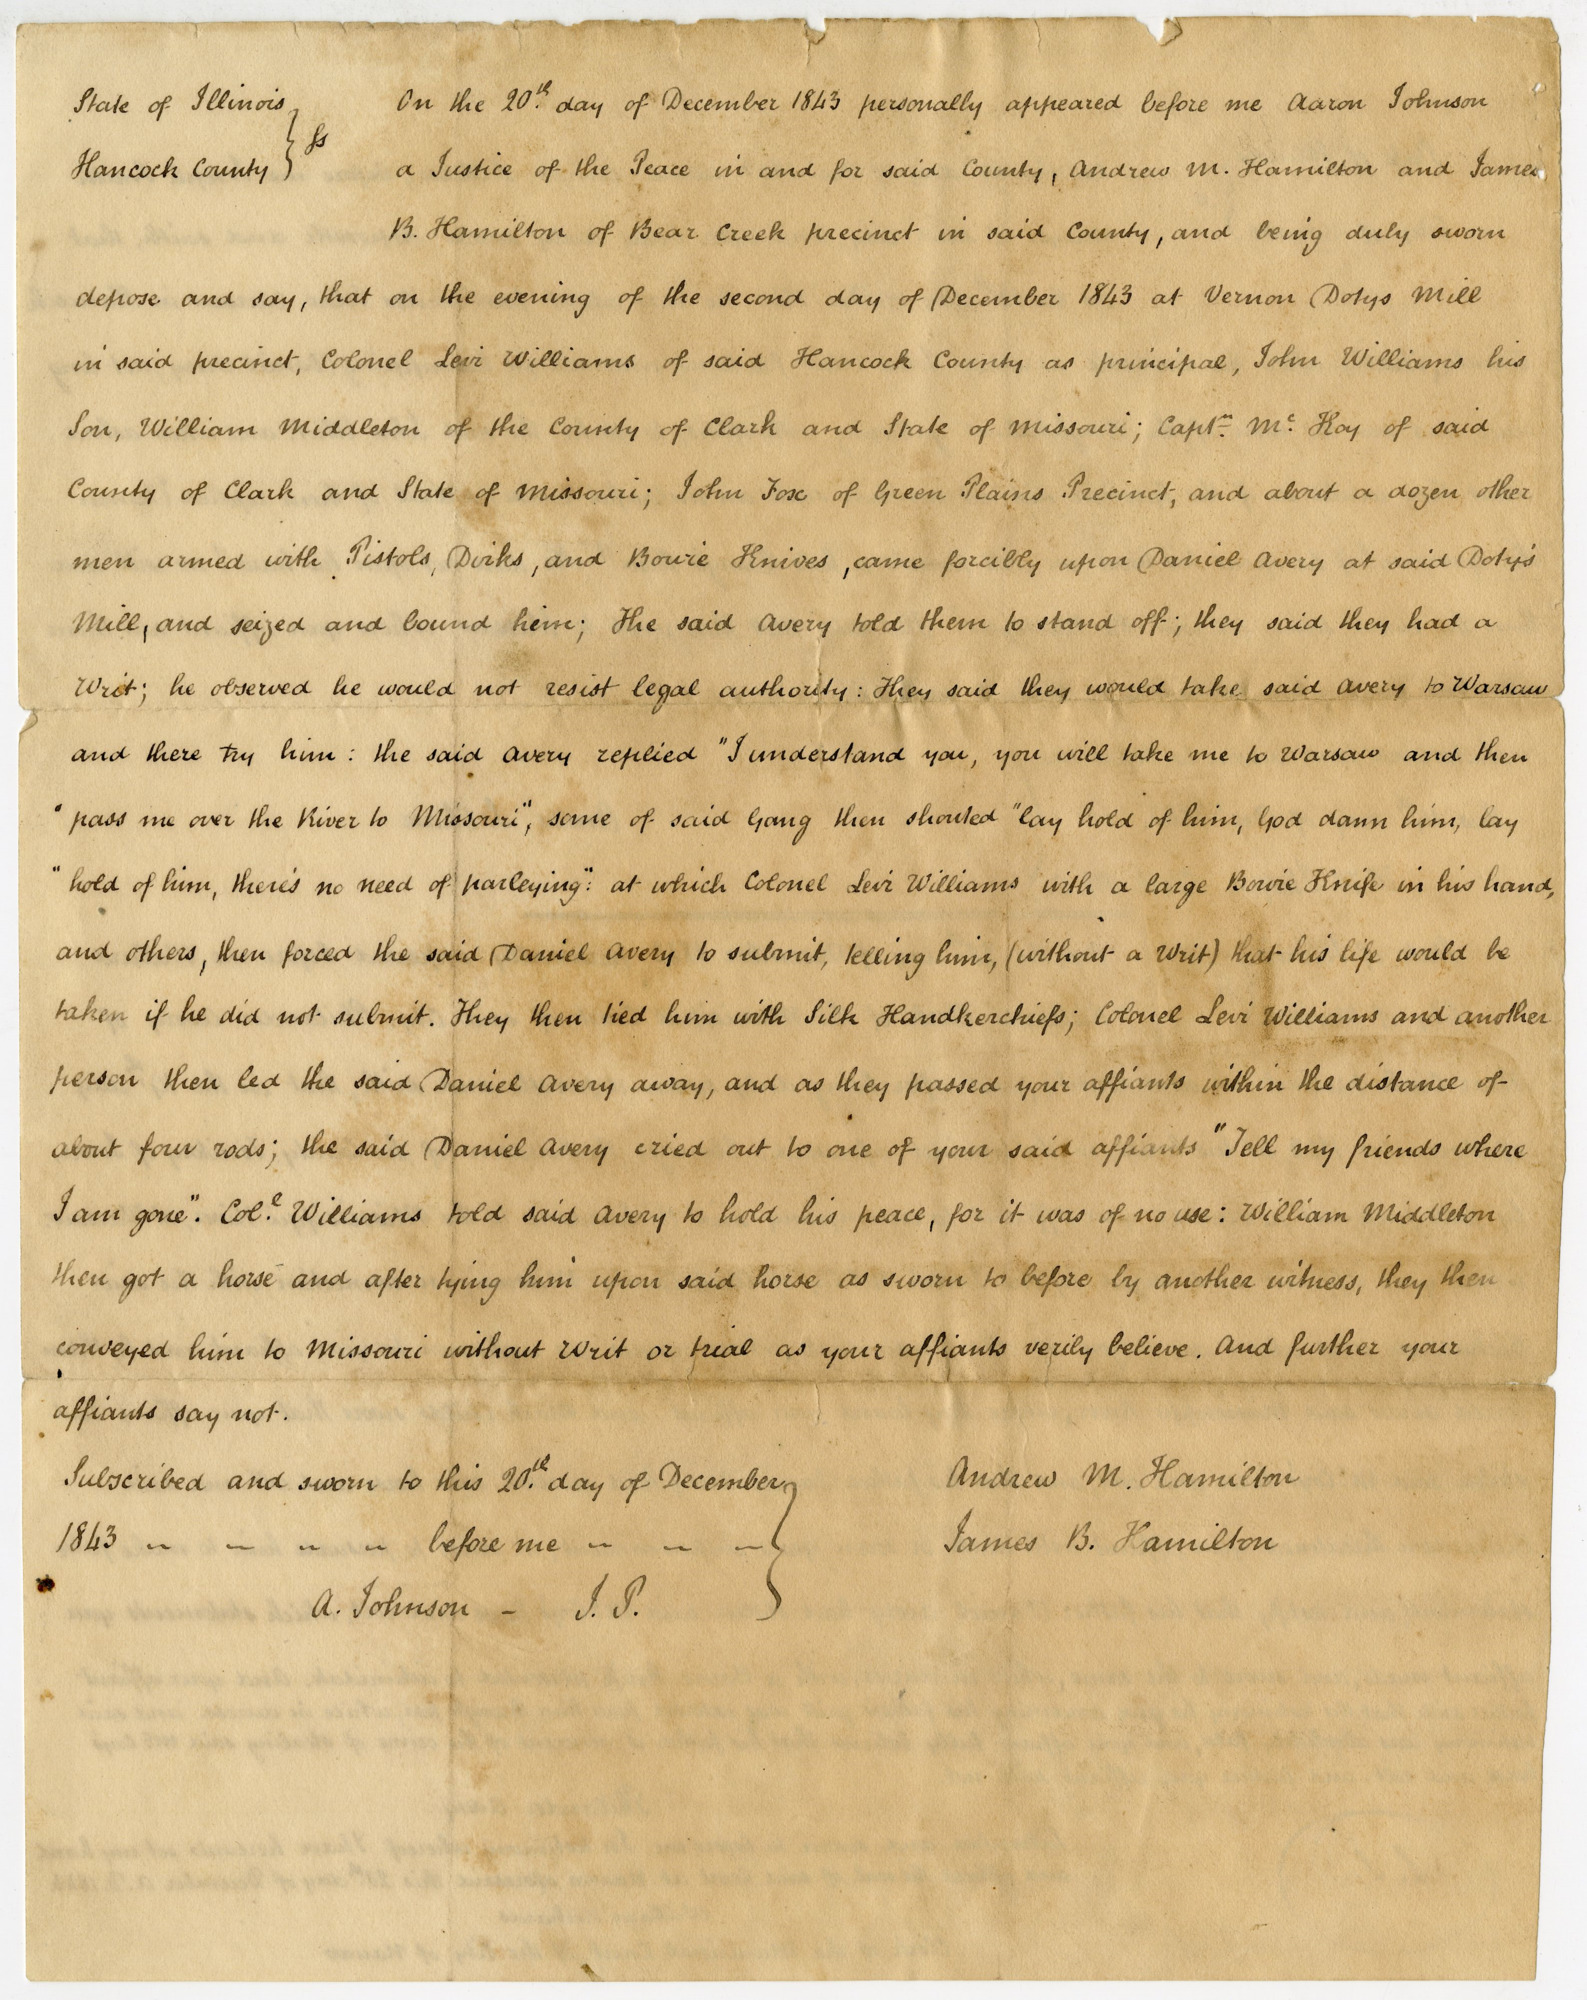 State of Illinois } ss On the 20th. day of December 1843 personally appeared before me Aaron Johnson
Hancock County } a Justice of the Peace in and for said County, Andrew M. Hamilton and James
B. Hamilton of Bear Creek precinct in said County, and being duly sworn
depose and say, that on the evening of the second day of December 1843 at Vernon Dotys Mill
in said precinct, Colonel Levi Williams of said Hancock County as principal, John Williams his
Son, William Middleton of the County of Clark and State of Missouri; Captn. Mc. Koy of said
County of Clark and State of Missouri; John Fox of Green Plains Precinct, and about a dozen other
men armed with Pistols, Dirks, and Bowie Knives, came forcibly upon Daniel Avery at said Doty's
Mill, and seized and bound him; The said Avery told them to stand off; they said they had a
Writ; he observed he would not resist legal authority: They said they would take said Avery to Warsaw
and there try him: the said Avery replied "I understand you, you will take me to Warsaw and then
" pass me over the River to Missouri", some of said Gang then shouted "lay hold of him, God damn him, lay
" hold of him, there's no need of parleying": at which Colonel Levi Williams with a large Bowie Knife in his hand,
and others, then forced the said Daniel Avery to submit, telling him, (without a Writ) that his life would be
taken if he did not submit. They then tied him with Silk Handkerchiefs; Colonel Levi Williams and another
person then led the said Daniel Avery away, and as they passed your affiants within the distance of
about four rods; the said Daniel Avery cried out to one of your said affiants "Tell my friends where
I am gone". Col.l Williams told said Avery to hold his peace, for it was of no use: William Middleton
then got a horse and after tying him upon said horse as sworn to before by another witness, they then
conveyed him to Missouri without Writ or trial as your affiants verily believe. And further your
affiants say not.
Subscribed and sworn to this 20th. day of December } Andrew M. Hamilton
1843 " " " " before me " " " } James B. Hamilton
A. Johnson - J. P.